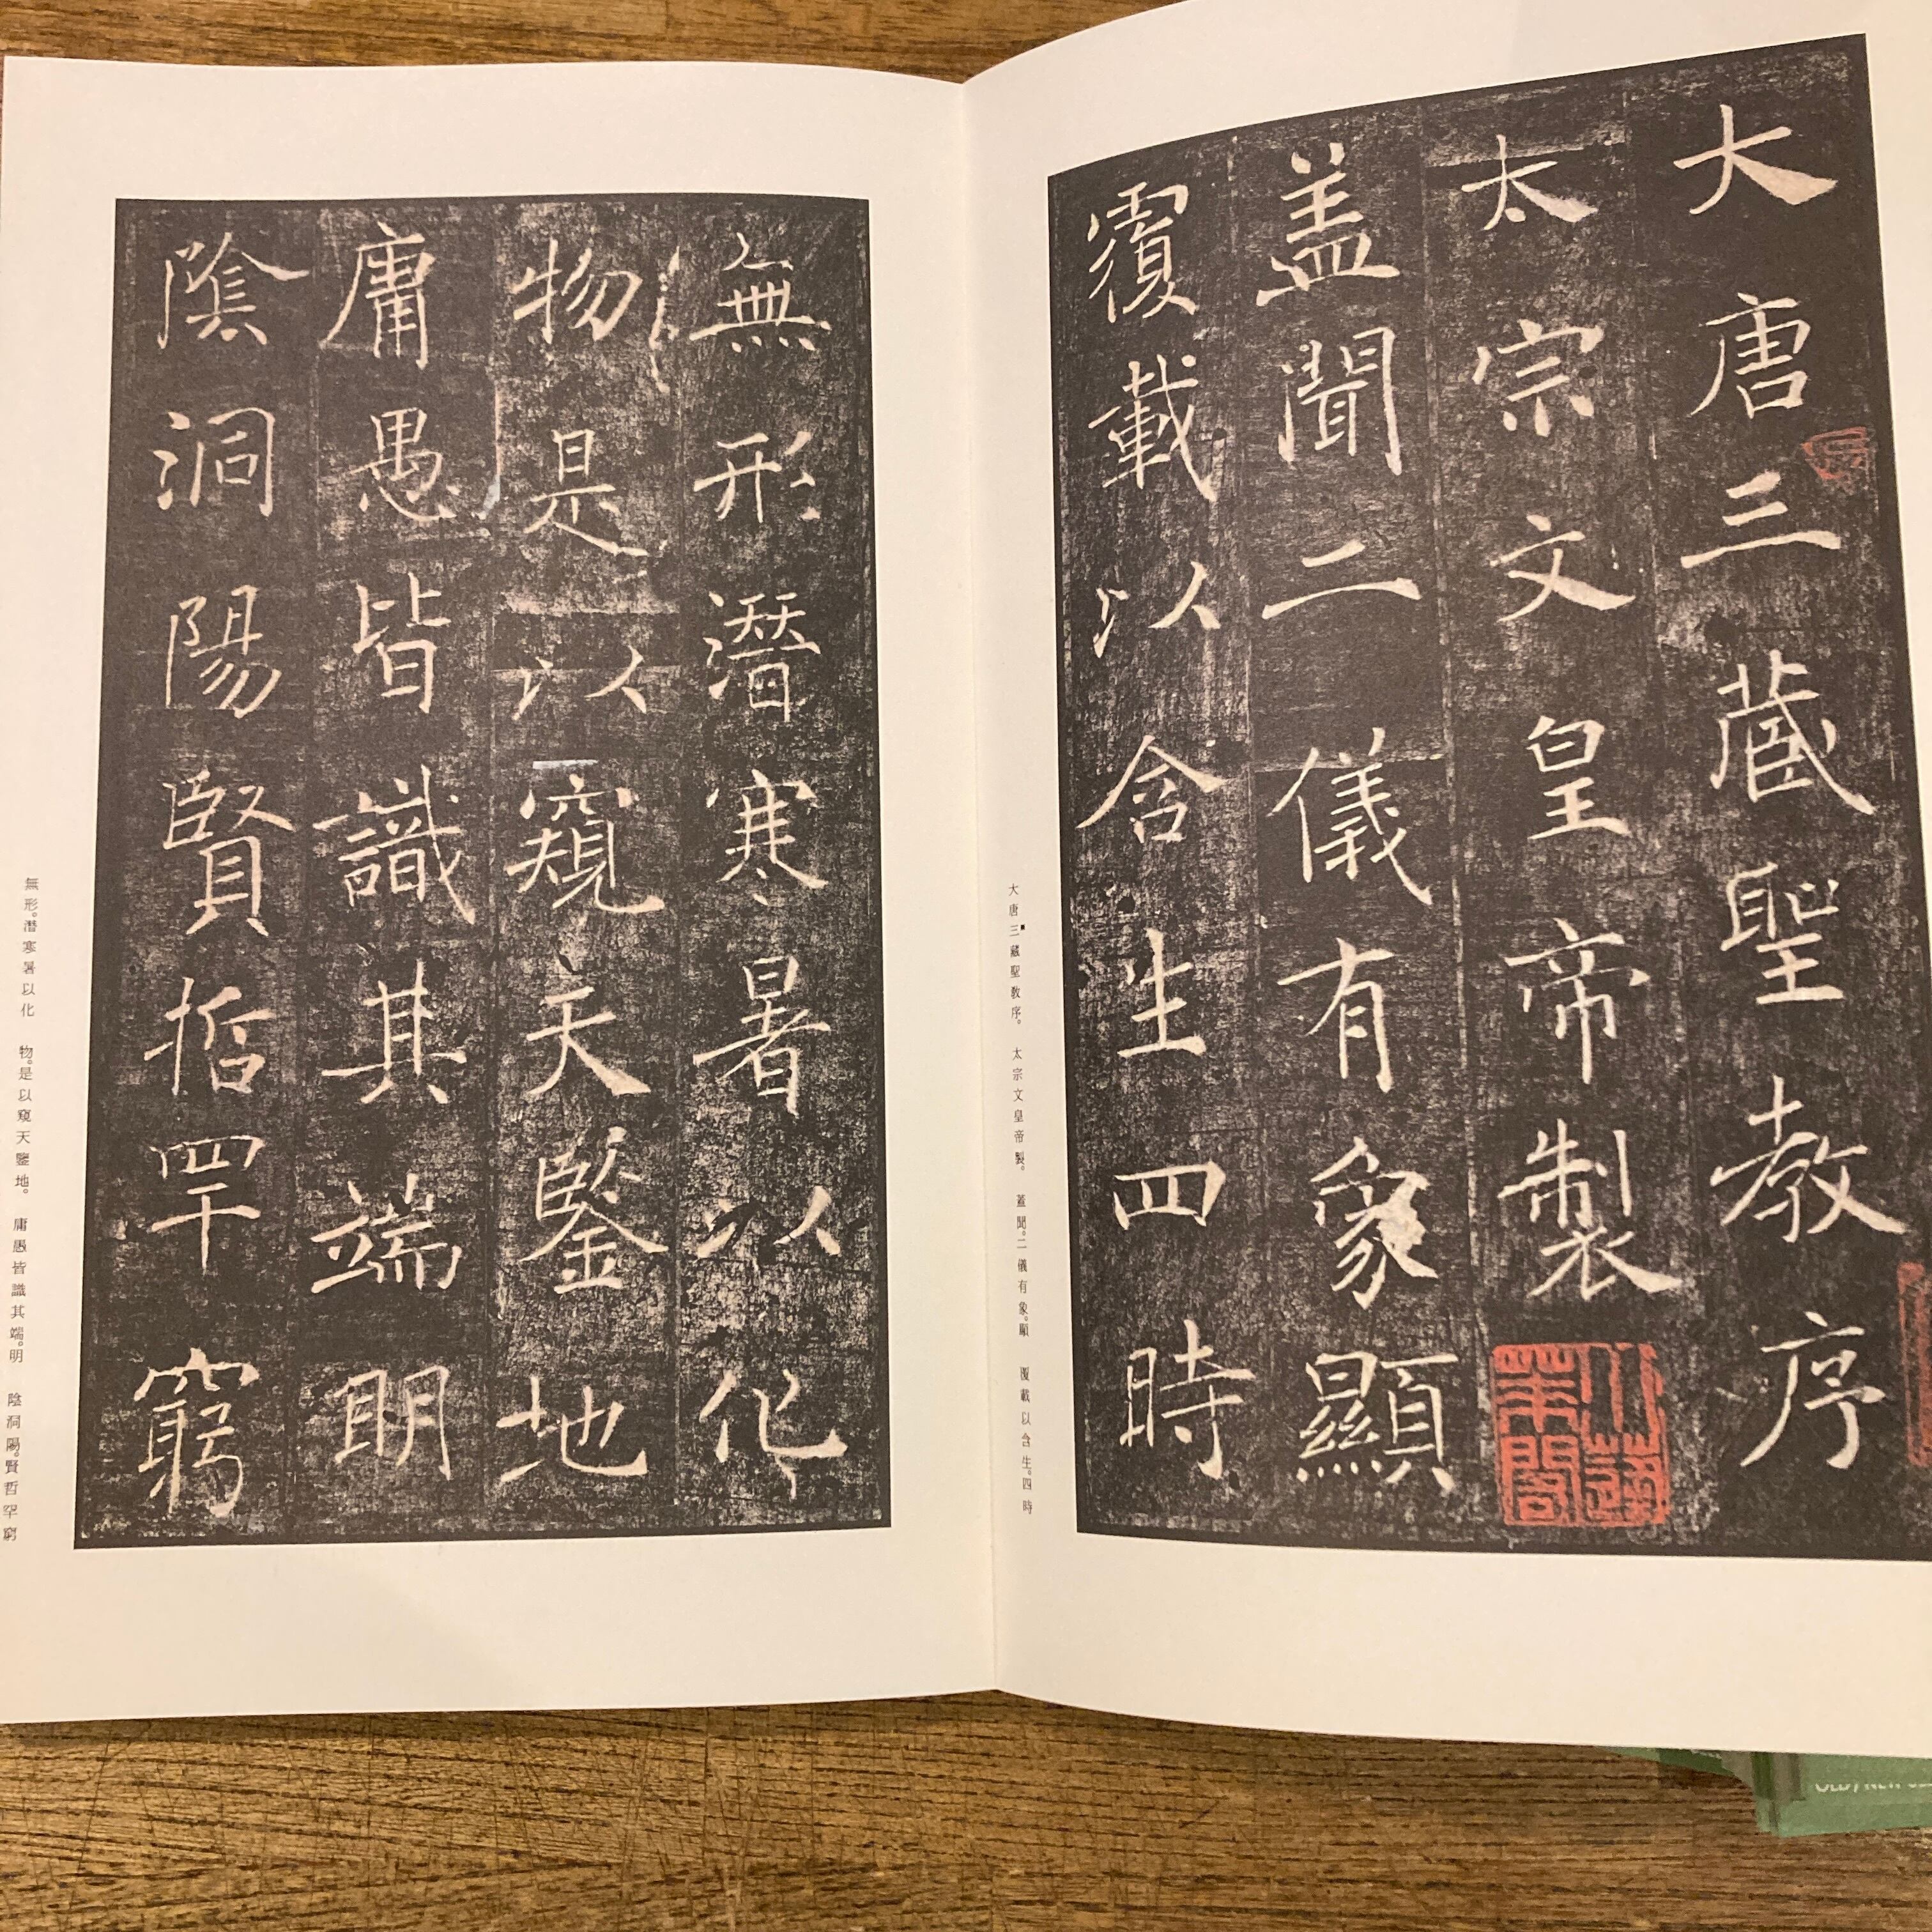 大唐三蔵聖教序
太宗文皇帝製
盖聞二儀有象顯
覆載以含生四時
大唐三藏聖教序。 太宗文皇帝製。 蓋聞。二儀有象。顯 覆載以含生。四時
無形潛寒暑以化
物是以窺天鑒地
庸愚皆識其端明
陰洞陽賢哲罕窮
無形。潛寒暑以化 物。是以窺天鑒地。 庸愚皆識其端。明 陰洞陽。賢哲罕窮